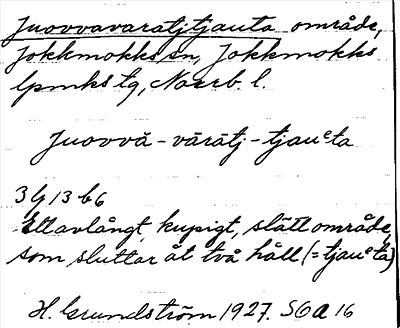 Juovvavaratjtjauta område,
Jokkmokks sn, Jokkmokks
lpmks tg, Norrb. l.
Juovvă - vārātj - tjauᵉta
3 G 13 b 6
Ett avlångt, kupigt, slätt område,
som sluttar åt två håll (= tjauᵉta)
H. Grundström 1927. S6a 16